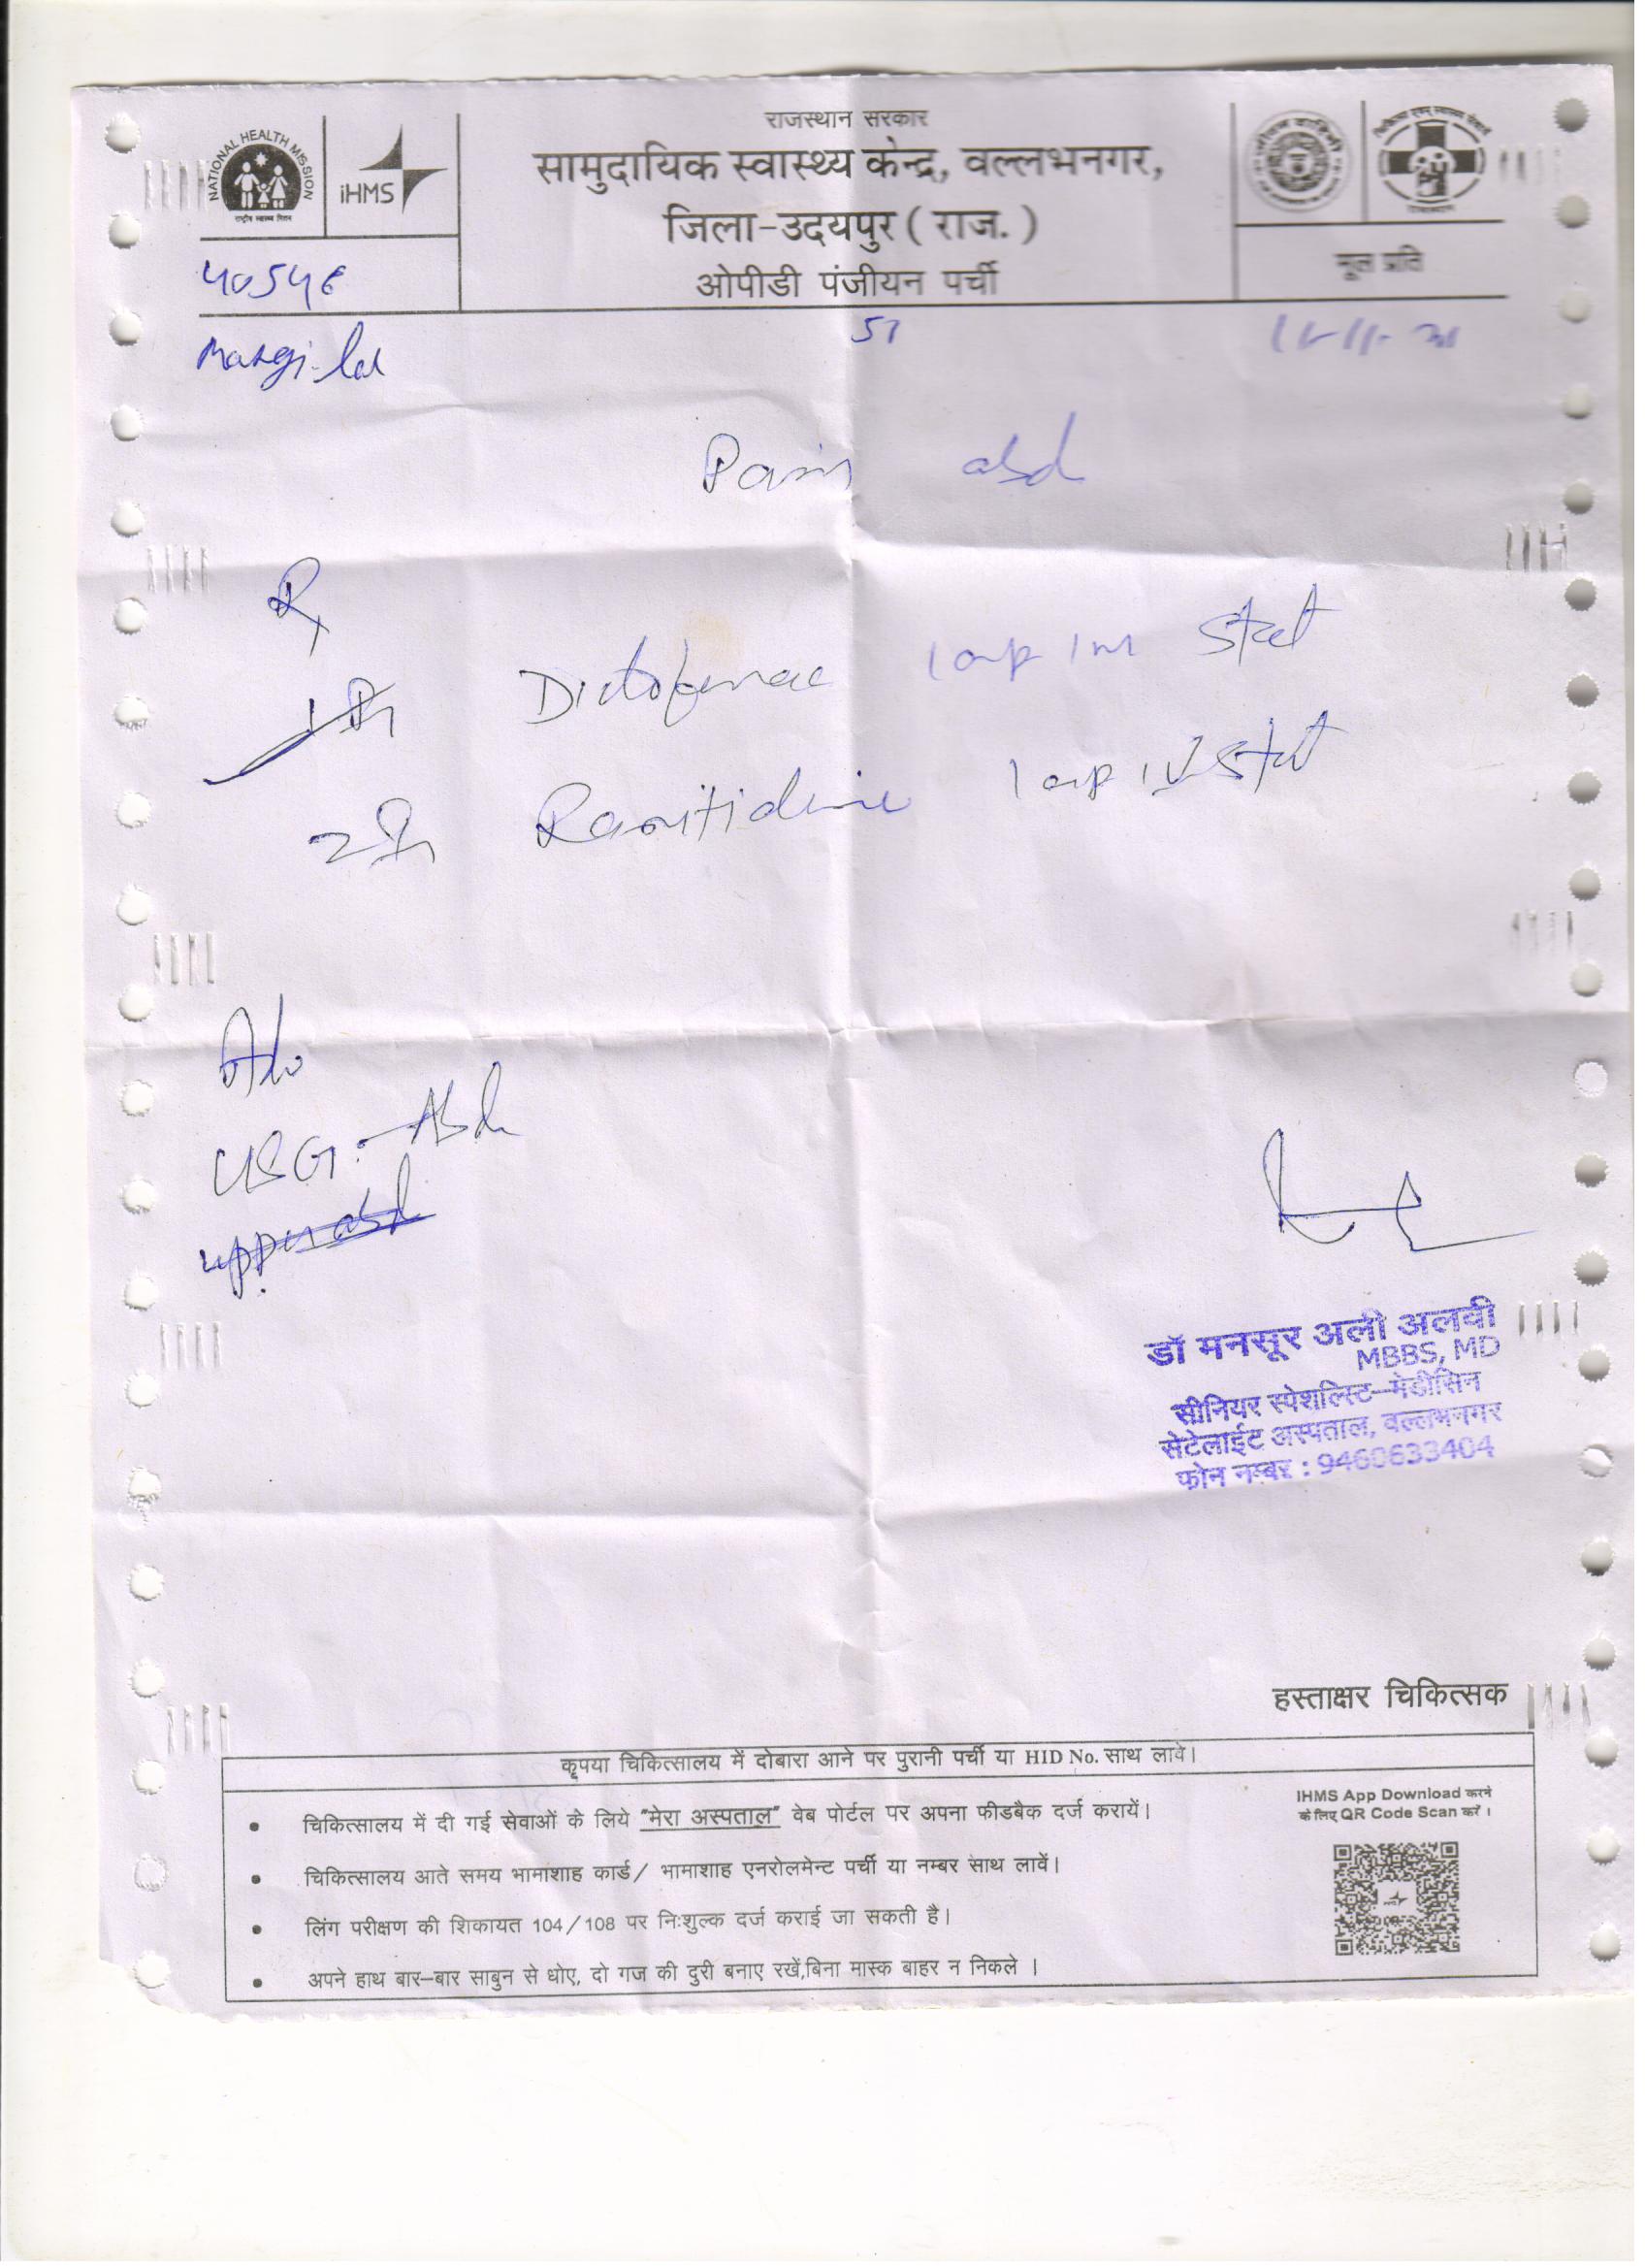 NATIONAL HEALTH MISSION
राष्ट्रीय स्वास्थ्य मिशन
iHMS
राजस्थान सरकार
सामुदायिक स्वास्थ्य केन्द्र, वल्लभनगर,
जिला-उदयपुर ( राज. )
ओपीडी पंजीयन पर्ची
मूल प्रति
51
Pain abd
Rx
Diclofenac 1 amp IM Stat
Ranitidine 1 amp IV Stat
Adv
USG. Abd
upper abd
डॉ मनसूर अली अलवी
MBBS, MD
सीनियर स्पेशलिस्ट-मेडीसिन
सेटेलाईट अस्पताल, वल्लभनगर
फोन नम्बर : 9460633404
हस्ताक्षर चिकित्सक
कृपया चिकित्सालय में दोबारा आने पर पुरानी पर्ची या HID No. साथ लावे।
• चिकित्सालय में दी गई सेवाओं के लिये "मेरा अस्पताल" वेब पोर्टल पर अपना फीडबैक दर्ज करायें।
• चिकित्सालय आते समय भामाशाह कार्ड/ भामाशाह एनरोलमेन्ट पर्ची या नम्बर साथ लावें।
• लिंग परीक्षण की शिकायत 104/108 पर निःशुल्क दर्ज कराई जा सकती है।
• अपने हाथ बार-बार साबुन से धोए, दो गज की दुरी बनाए रखें,बिना मास्क बाहर न निकले ।
IHMS App Download करने
के लिए QR Code Scan करें ।